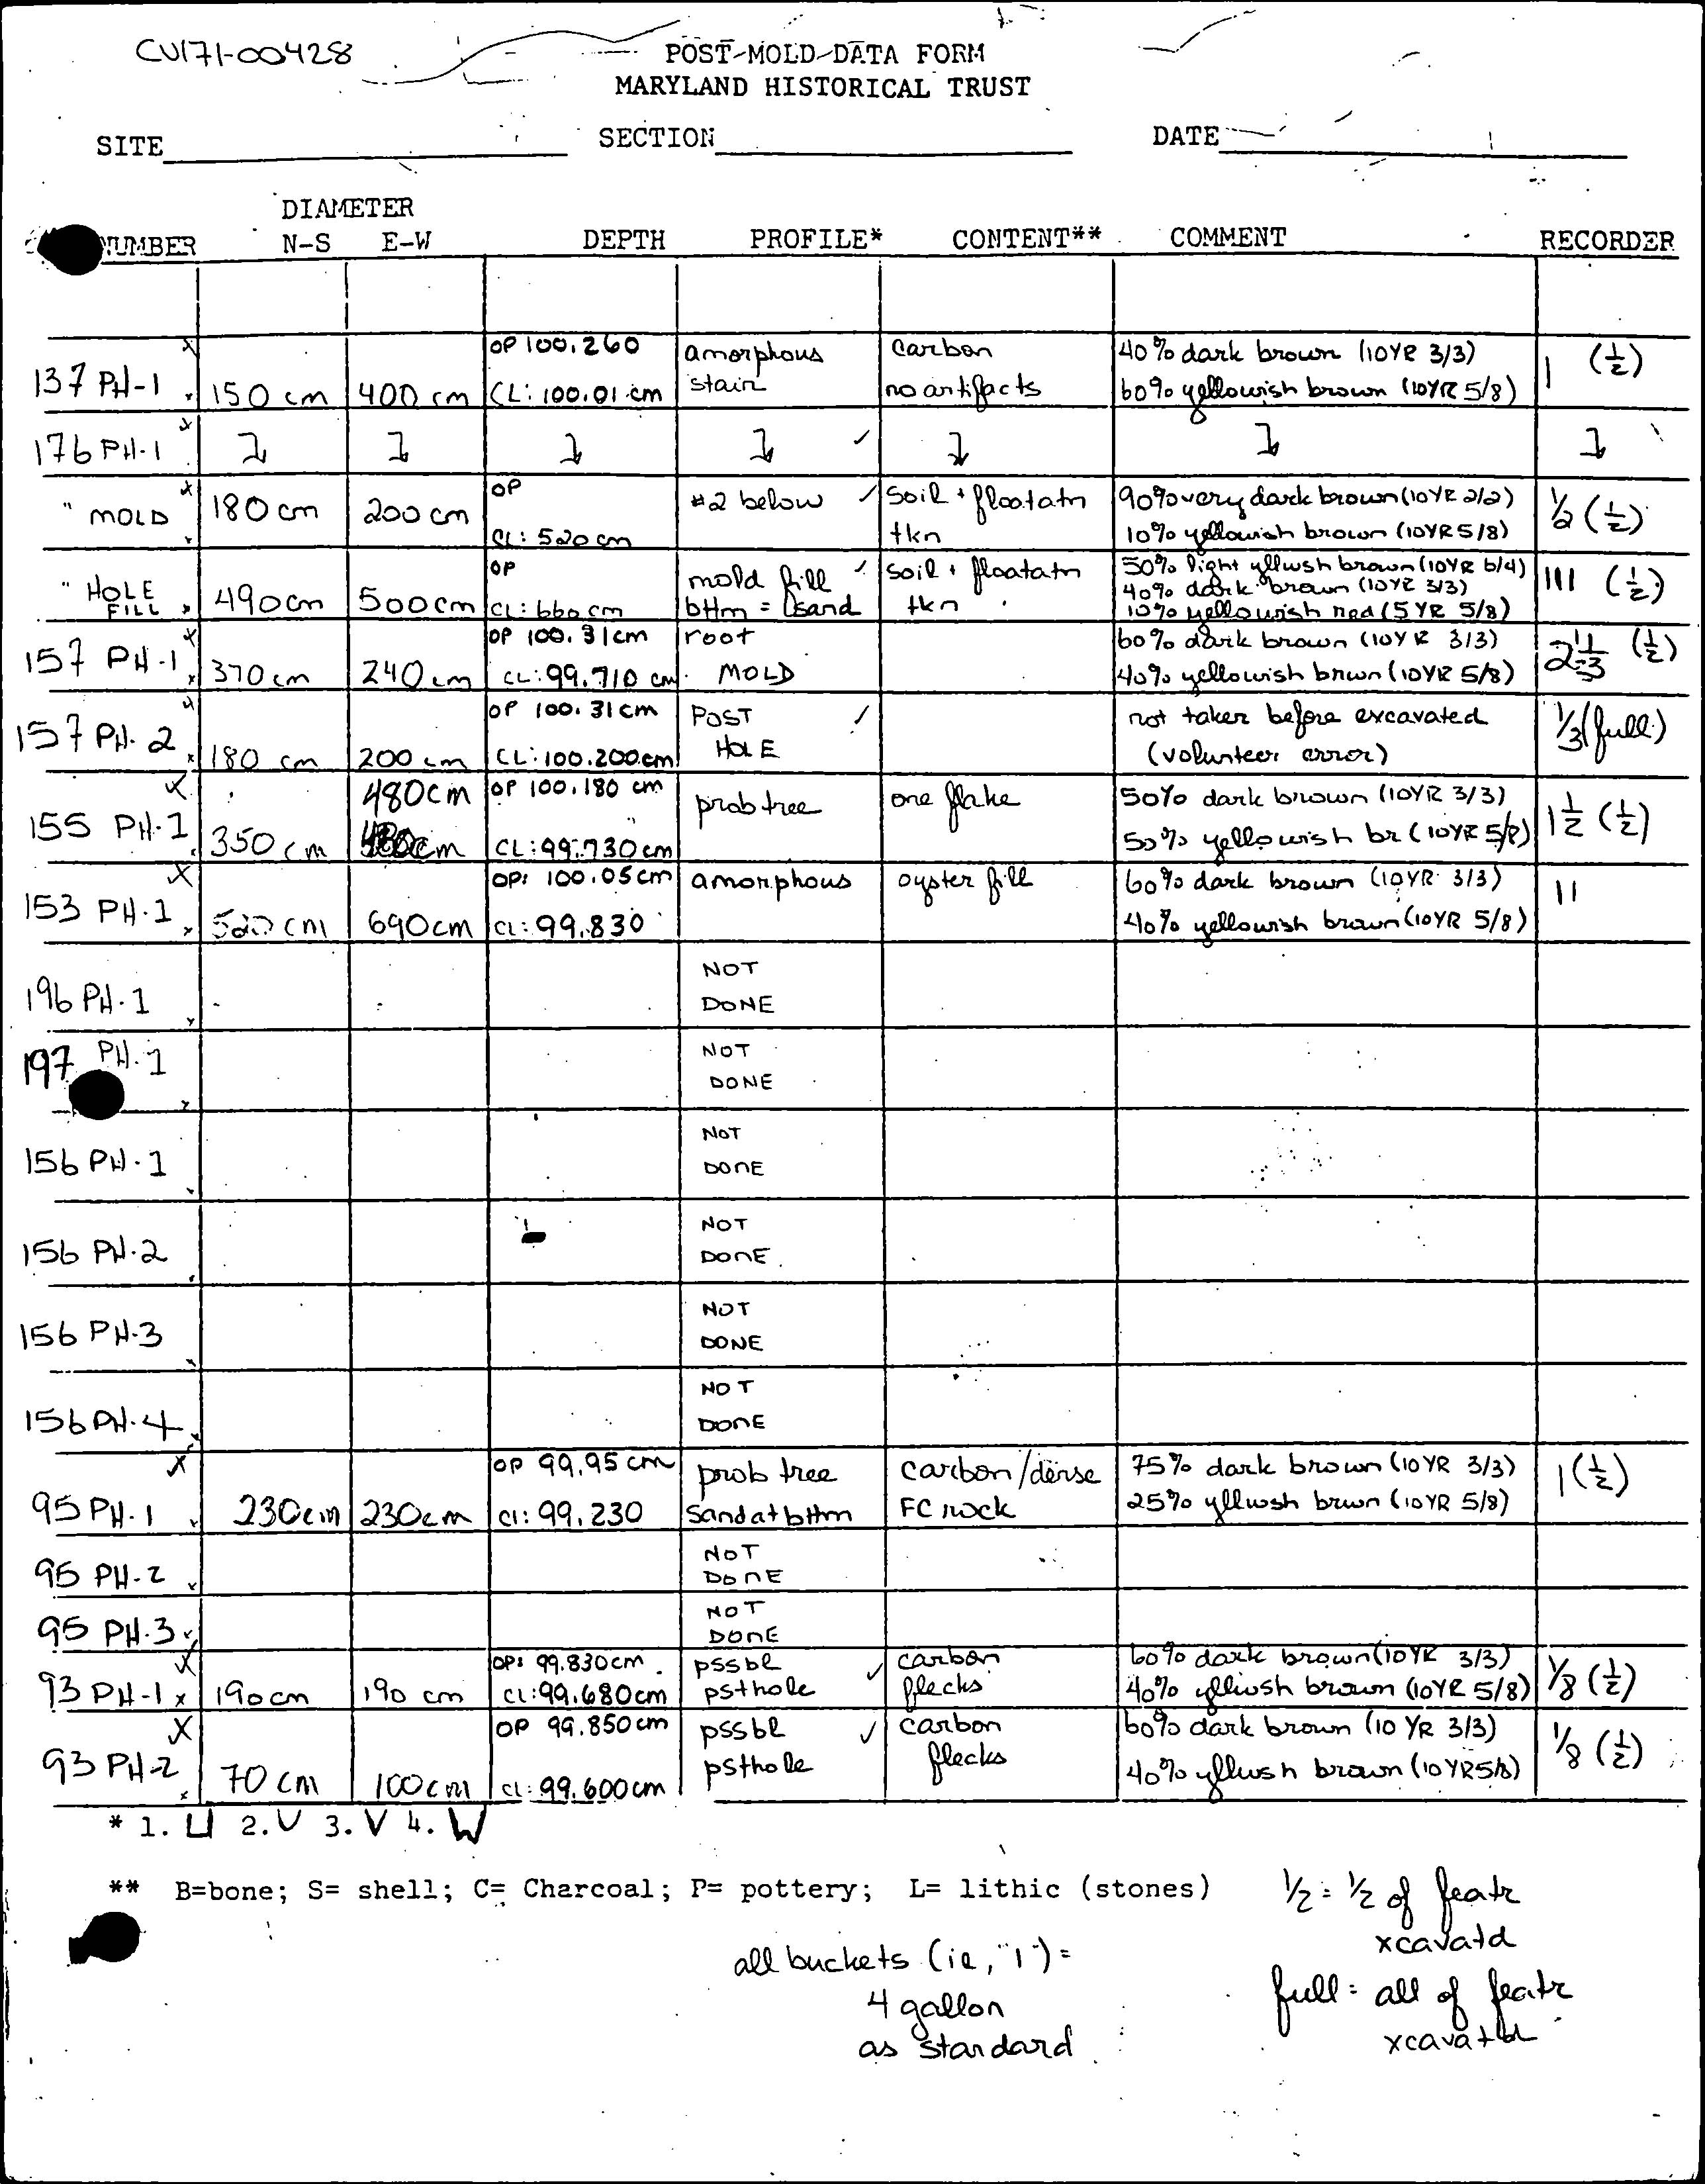 CV171-00428
POST-MOLD-DATA FORM
MARYLAND HISTORICAL TRUST
SITE SECTION DATE
DIAMETER
NUMBER N-S E-W DEPTH PROFILE* CONTENT** COMMENT RECORDER
OP 100.260 amorphous carbon 40% dark brown (10YR 3/3)
137 PH-1 150 cm 400 cm CL: 100.01 cm stain no artifacts 60% yellowish brown (10YR 5/8) 1 (1/2)
176 PH-1
OP #2 below ✓ soil + floatatn 90% very dark brown (10YR 2/2)
" MOLD 180 cm 200 cm CL: 520 cm tkn 10% yellowish brown (10YR 5/8) 1/2 (1/2)
OP mold fill soil + floatatn 50% light yllwsh brown (10YR 6/4)
" HOLE 40% dark brown (10YR 3/3)
FILL 490cm 500cm CL: 660 cm bttm = sand tkn 10% yellowish red (5 YR 5/8) 111 (1/2)
OP 100.31cm root 60% dark brown (10YR 3/3)
157 PH-1 370 cm 240 cm CL: 99.710 cm. MOLD 40% yellowish brwn (10YR 5/8) (1/2)
OP 100.31cm POST ✓ not taken before excavated
157 PH-2 180 cm 200 cm CL: 100.200cm HOLE (volunteer error) 1/3 (full)
480cm OP 100.180 cm prob tree one flake 50% dark brown (10YR 3/3)
155 PH-1 350 cm CL: 99.730cm 50% yellowish br (10YR 5/8) 1 1/2 (1/2)
OP: 100.05cm amorphous oyster fill 60% dark brown (10YR 3/3)
153 PH-1 520 cm 690cm CL: 99.830 40% yellowish brown (10YR 5/8) 11
NOT
196 PH-1 DONE
197 PH-1 NOT
DONE
NOT
156 PH-1 DONE
NOT
156 PH-2 DONE
NOT
156 PH-3 DONE
NOT
156 PH-4 DONE
OP 99.95 cm prob tree carbon/dense 75% dark brown (10YR 3/3)
95 PH-1 230cm 230cm Cl: 99.230 Sand at bttm FC rock 25% yllwsh brwn (10YR 5/8) 1 (1/2)
NOT
95 PH-2 DONE
NOT
95 PH-3 DONE
OP: 99.830cm. pssbl ✓ carbon 60% dark brown (10YR 3/3)
93 PH-1 190cm 190 cm CL: 99.680cm psthole flecks 40% yllwsh brown (10YR 5/8) 1/8 (1/2)
OP 99.850cm pssbl ✓ carbon 60% dark brown (10 YR 3/3)
93 PH-2 70 cm 100cm CL: 99.600cm psthole flecks 40% yllwsh brown (10YR5/8) 1/8 (1/2)
* 1. ⊔ 2. U 3. V 4. W
** B=bone; S= shell; C= Charcoal; P= pottery; L= lithic (stones)
1/2 = 1/2 of featr
xcavatd
all buckets (ie, "1") =
4 gallon
as standard
full = all of featr
xcavatd